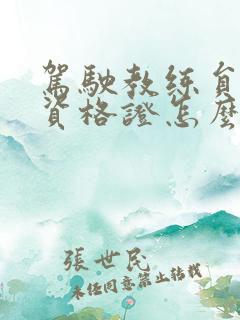 駕駛教练員
資格證怎麼
張世民
未经同意禁止转载